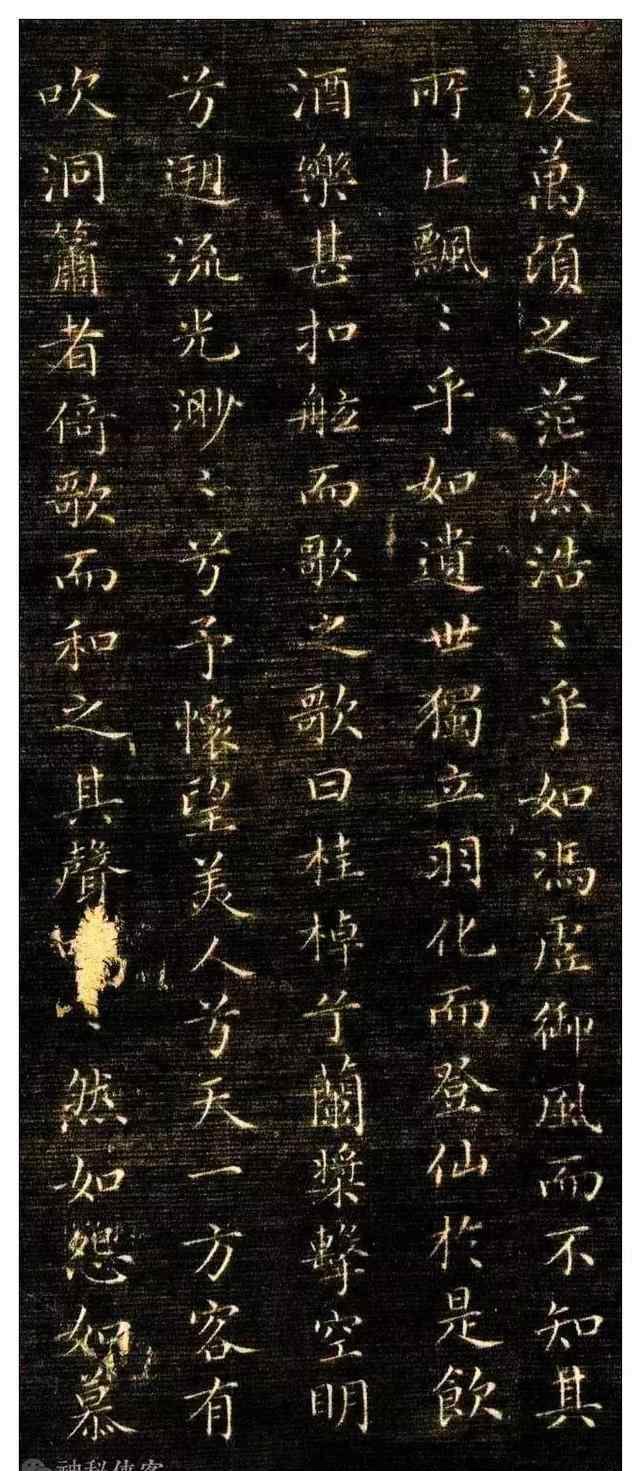 淩萬頃之茫然浩〻乎如馮虛御風而不知其
所止飄〻乎如遺世獨立羽化而登仙於是飲
酒樂甚扣舷而歌之歌曰桂棹兮蘭槳擊空明
兮遡流光渺〻兮予懷望美人兮天一方客有
吹洞簫者倚歌而和之其聲〻然如怨如慕
神秘侠客